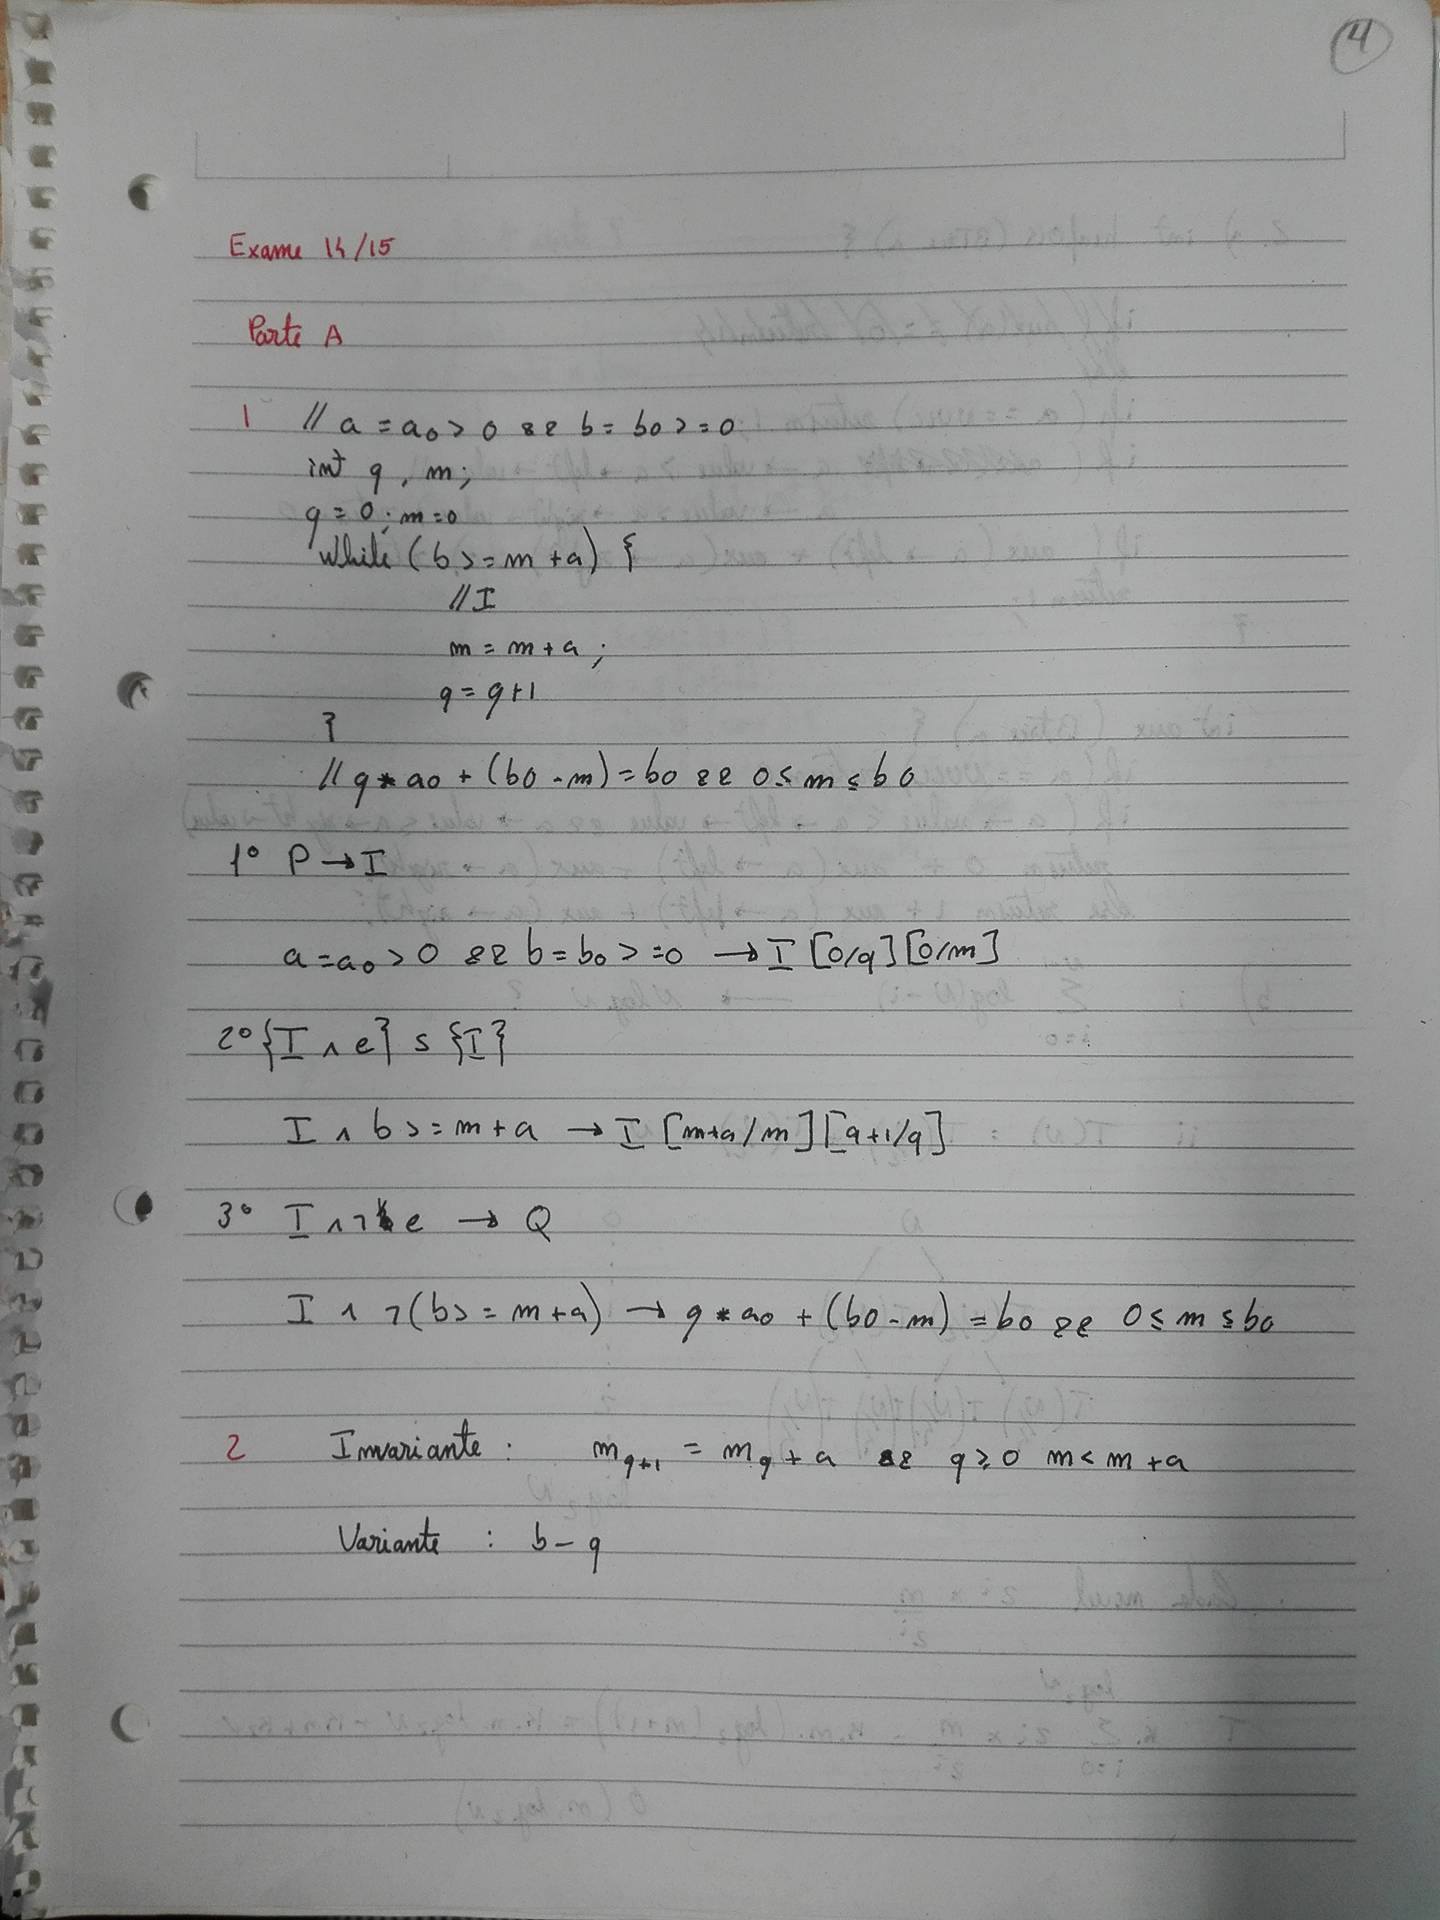 4
Exame 14/15
Parte A
1 // a = a0 > 0 && b = b0 >= 0
int q, m;
q = 0; m = 0
while (b >= m + a) {
// I
m = m + a;
q = q+1
}
// q * a0 + (b0 - m) = b0 && 0 ≤ m ≤ b0
1º P → I
a = a0 > 0 && b = b0 >= 0 → I [0/q][0/m]
2º {I ∧ e} s {I}
I ∧ b >= m + a → I [m+a/m][q+1/q]
3º I ∧ ¬ e → Q
I ∧ ¬(b >= m + a) → q * a0 + (b0 - m) = b0 && 0 ≤ m ≤ b0
2 Invariante : m q+1 = m q + a && q ≥ 0 m < m + a
Variante : b - q